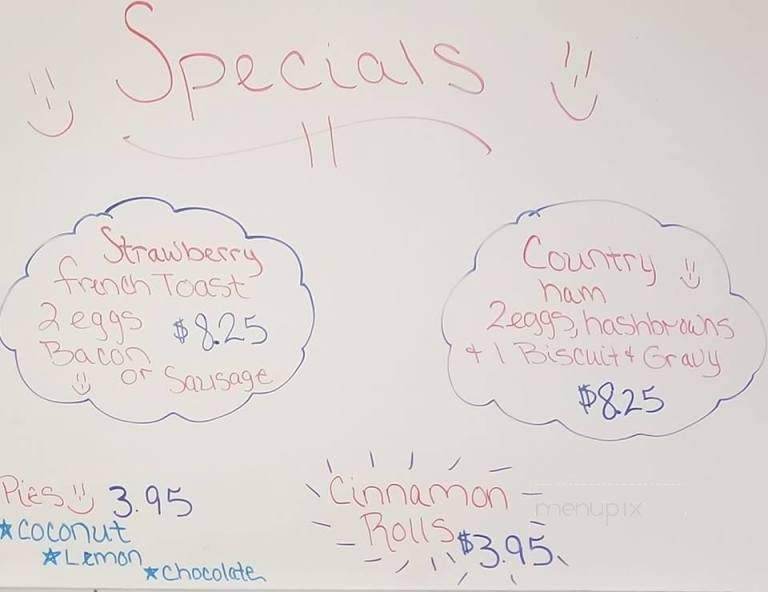 Specials
Strawberry
french Toast
2 eggs $8.25
Bacon
or Sausage
Country
ham
2eggs, hashbrowns
+ 1 Biscuit + Gravy
$8.25
Pies 3.95
★Coconut
★Lemon
★Chocolate
Cinnamon
Rolls $3.95
menupix